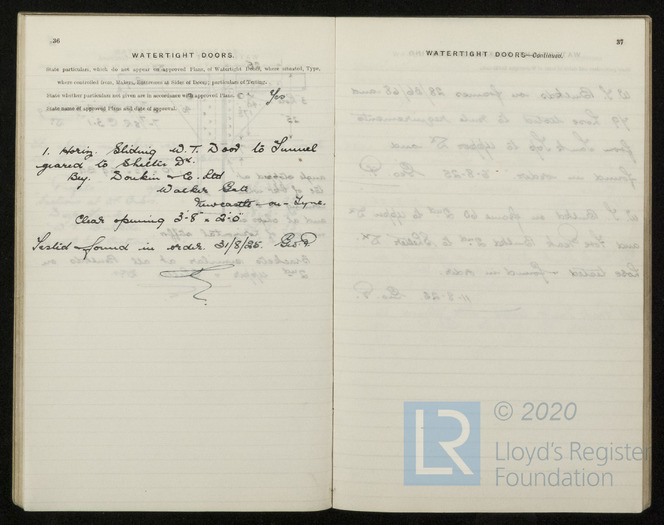 36
WATERTIGHT DOORS.
State particulars, which do not appear on approved Plans, of Watertight Doors, where situated, Type,
where controlled from, Makers, Dimensions at Sides of Entry; particulars of Testing.
State whether particulars not given are in accordance with approved Plans. Yes
State name of approved Plans and date of approval.
1. Horiz. Sliding W. T. Door to Tunnel
geared to Shelter Dk.
By. Donkin & Co. Ltd
Walker Gate
Newcastle-on-Tyne.
Clear opening 3'-8" × 2'-0"
Tested & found in order. 31/8/25.
37
WATERTIGHT DOORS—Continued.
© 2020
LR
Lloyd's Register
Foundation